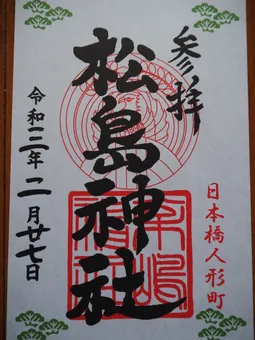 参拝
松島神社
日本橋人形町
令和三年二月廿七日